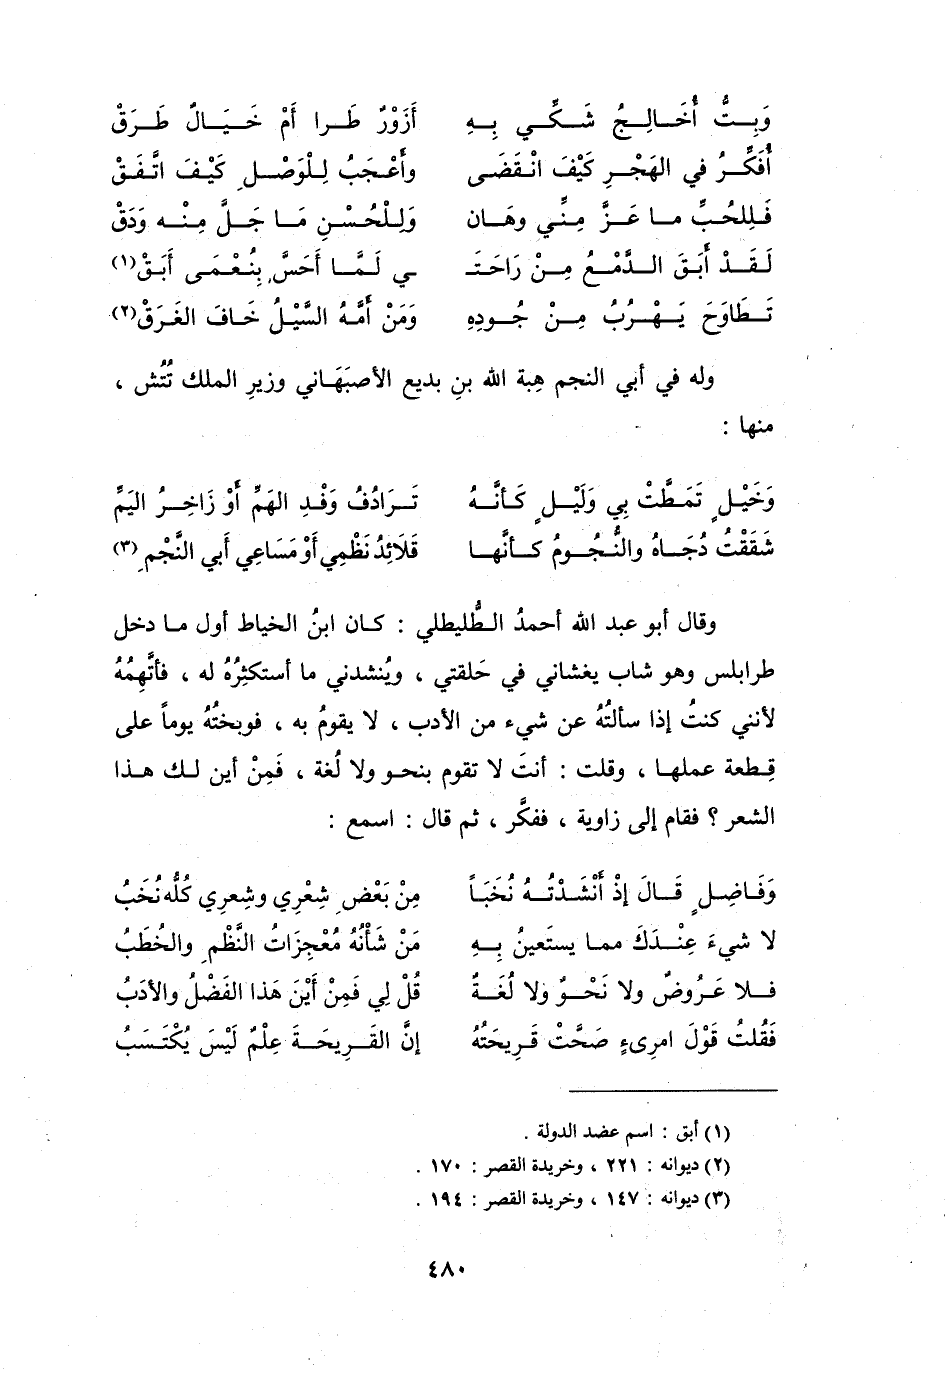 وَبِتُّ أُخَالِجُ شَكِّي بِهِ أَزَوْرٌ طَرا أَمْ خَيَالٌ طَرَقْ
أُفَكِّرُ في الهَجْرِ كَيْفَ انْقَضَى وأَعْجَبُ لِلْوَصْلِ كَيْفَ اتَّفَقْ
فَلِلحُبِّ ما عَزَّ مِنِّي وهَان وَلِلْحُسْنِ مَا جَلَّ مِنْه وَدَقْ
لَقَدْ أَبَقَ الدَّمْعُ مِنْ رَاحَتَـ ـي لَمَّا أَحَسَّ بِنُعْمَى أَبَقْ(١)
تَطَاوَحَ يَهْرُبُ مِنْ جُودِهِ وَمَنْ أَمَّهُ السَّيْلُ خَافَ الغَرَقْ(٢)
وله في أبي النجم هِبة الله بن بديع الأصبَهَاني وزيرِ الملك تُتُش ،
منها :
وَخَيْلٍ تَمَطَّتْ بِي وَلَيْلٍ كَأنَّهُ تَرَادُفُ وَفْدِ الهَمِّ أَوْ زَاخِرُ اليَمِّ
شَقَقْتُ دُجَاهُ والنُّجُومُ كأنَّها قَلَائِدُ نَظْمِي أَوْ مَسَاعِي أَبي النَّجْمِ(٣)
وقال أبو عبد الله أحمدُ الطُّليطلي : كان ابنُ الخياط أول ما دخل
طرابلس وهو شاب يغشاني في حَلقتي ، ويُنشدني ما أستكثِرُهُ له ، فأتَّهِمُهُ
لأنني كنتُ إذا سألتُهُ عن شيء من الأدب ، لا يقومُ به ، فوبختُهُ يوماً على
قِطعة عملها ، وقلت : أنتَ لا تقوم بنحو ولا لُغة ، فَمِنْ أين لك هذا
الشعر ؟ فقام إلى زاوية ، ففكَّر ، ثم قال : اسمع :
وَفَاضِلٍ قَالَ إذْ أَنْشَدْتُهُ نُخَبَاً مِنْ بَعْضِ شِعْرِي وشِعرِي كُلُّه نُخَبُ
لا شيءَ عِنْدَكَ مما يستَعينُ بِهِ مَنْ شَأْنُهُ مُعْجِزَاتُ النَّظْمِ والخُطَبُ
فلا عَرُوضٌ ولا نَحْوٌ ولا لُغَةٌ قُلْ لِي فَمِنْ أَيْنَ هَذا الفَضْلُ والأدَبُ
فَقُلتُ قَوْلَ امرِىءٍ صَحَّتْ قَرِيحَتُهُ إنَّ القَرِيحَةَ عِلْمٌ لَيْسَ يُكْتَسَبُ
(١) أبق : اسم عضد الدولة .
(٢) ديوانه : ٢٢١ ، وخريدة القصر : ١٧٠ .
(٣) ديوانه : ١٤٧ ، وخريدة القصر : ١٩٤ .
٤٨٠